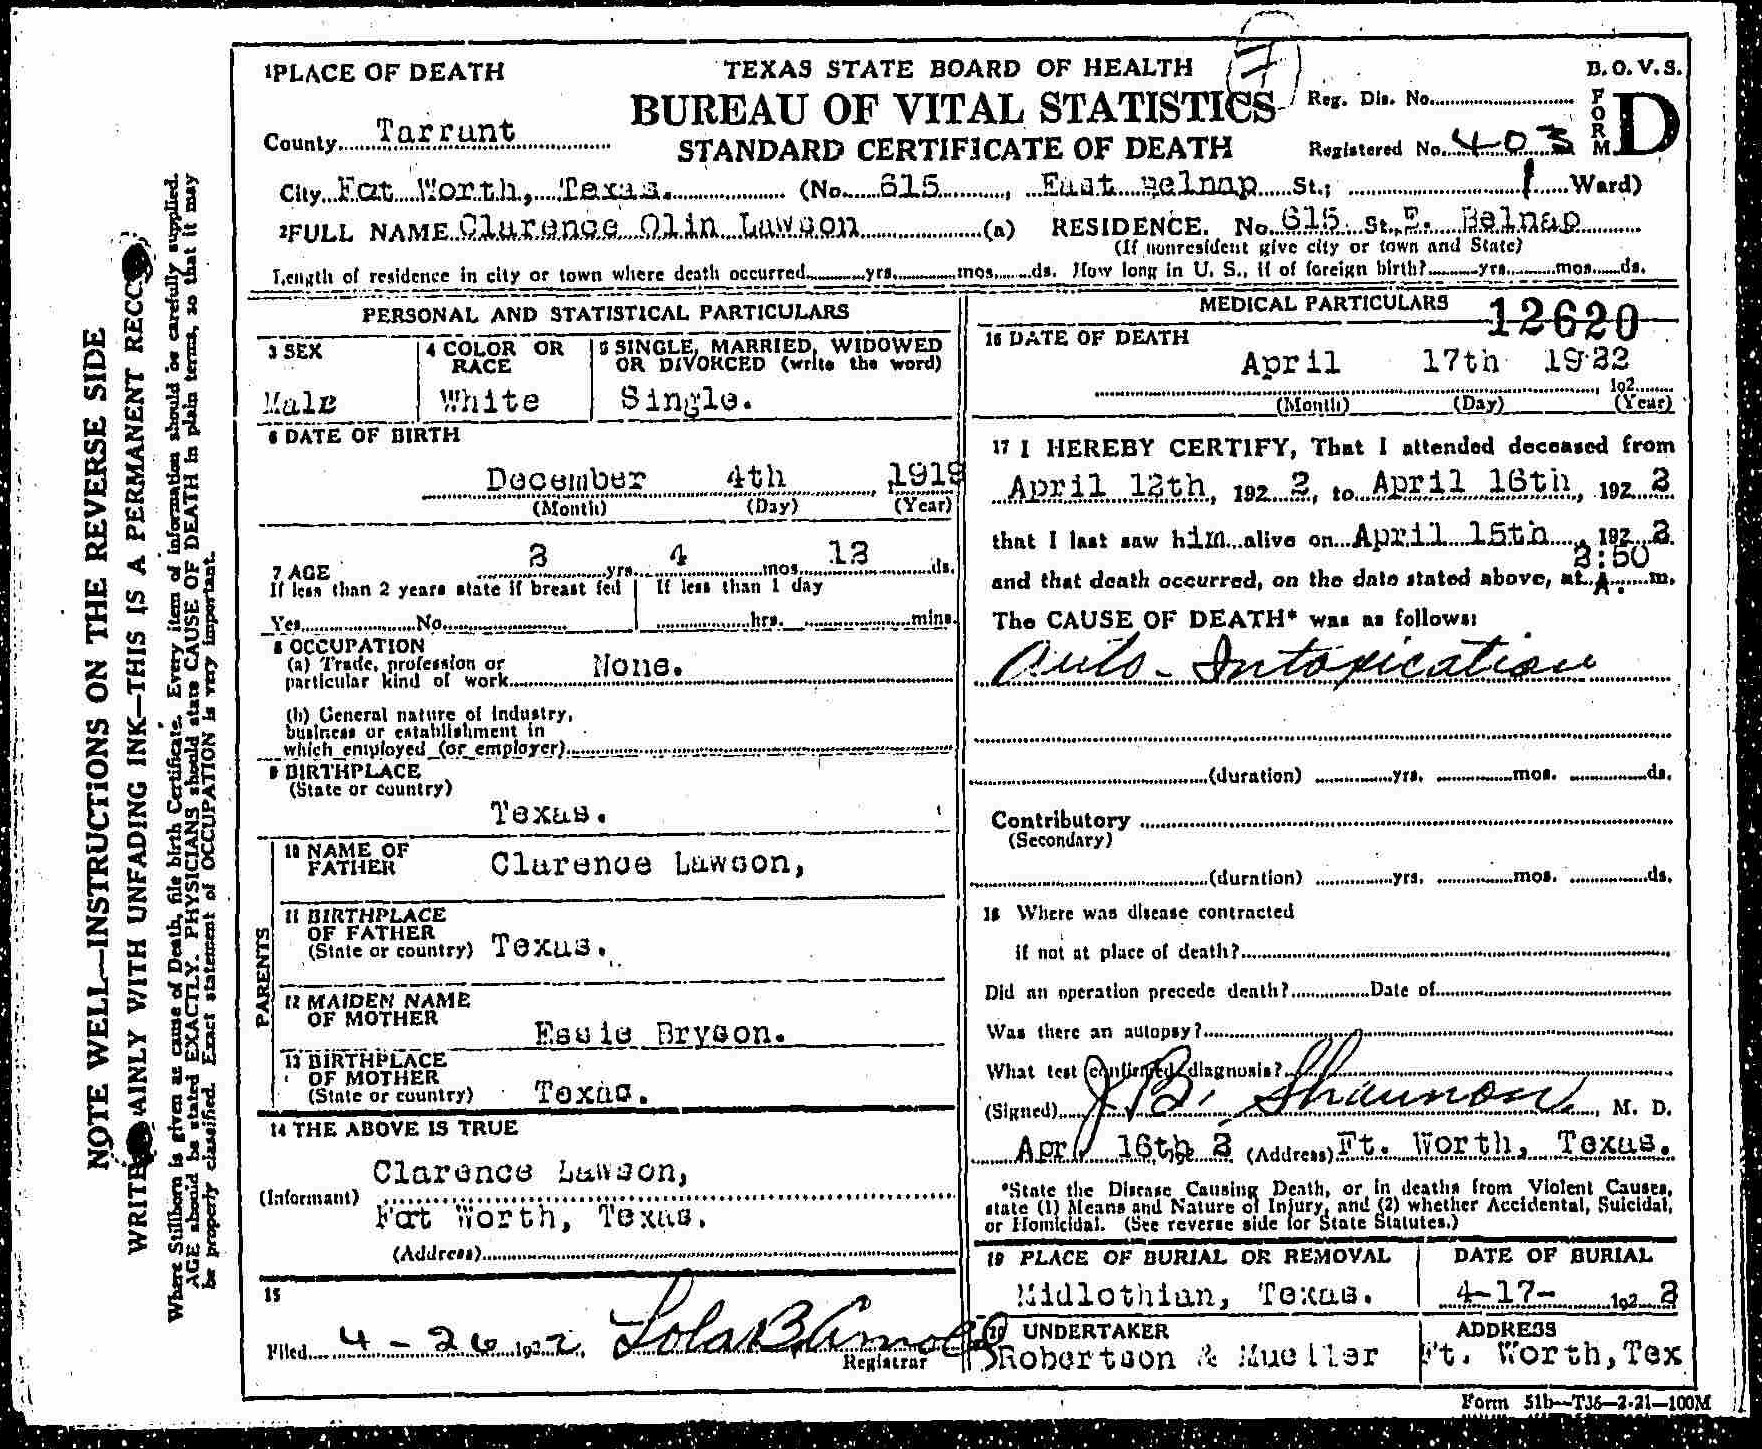 1 PLACE OF DEATH
TEXAS STATE BOARD OF HEALTH
B. O. V. S.
BUREAU OF VITAL STATISTICS
Reg. Dis. No.
FORM D
County Tarrant
STANDARD CERTIFICATE OF DEATH
Registered No. 403
City Fot Worth, Texas. (No. 615, East Belnap St.; 1 Ward)
2 FULL NAME Clarence Olin Lawson (a) RESIDENCE. No. 615 St., E. Belnap
(If nonresident give city or town and State)
Length of residence in city or town where death occurred yrs. mos. ds. How long in U. S., if of foreign birth? yrs. mos. ds.
PERSONAL AND STATISTICAL PARTICULARS
3 SEX
Male
4 COLOR OR RACE
White
5 SINGLE, MARRIED, WIDOWED
OR DIVORCED (write the word)
Single.
6 DATE OF BIRTH
December 4th, 1919
(Month) (Day) (Year)
7 AGE 3 yrs. 4 mos. 13 ds.
If less than 2 years state if breast fed
Yes No
If less than 1 day
hrs. mins.
8 OCCUPATION
(a) Trade, profession or
particular kind of work None.
(b) General nature of Industry,
business or establishment in
which employed (or employer)
9 BIRTHPLACE
(State or country)
Texas.
PARENTS
10 NAME OF
FATHER Clarence Lawson,
11 BIRTHPLACE
OF FATHER
(State or country) Texas.
12 MAIDEN NAME
OF MOTHER
Essie Bryson.
13 BIRTHPLACE
OF MOTHER
(State or country) Texas.
14 THE ABOVE IS TRUE
Clarence Lawson,
(Informant)
Fort Worth, Texas.
(Address)
15
Filed 4-26, 1922. Lola B Arnold
Registrar
MEDICAL PARTICULARS
12620
16 DATE OF DEATH
April 17th 1922
192
(Month) (Day) (Year)
17 I HEREBY CERTIFY, That I attended deceased from
April 12th, 192 2, to April 16th, 192 2
that I last saw him alive on April 15th, 192 2
3:50
and that death occurred, on the date stated above, at A. m.
The CAUSE OF DEATH* was as follows:
Auto-Intoxication
(duration) yrs. mos. ds.
Contributory
(Secondary)
(duration) yrs. mos. ds.
18 Where was disease contracted
if not at place of death?
Did an operation precede death? Date of
Was there an autopsy?
What test confirmed diagnosis?
(Signed) J B. Shannon, M. D.
Apr 16th 2 (Address) Ft. Worth, Texas.
*State the Disease Causing Death, or in deaths from Violent Causes,
state (1) Means and Nature of Injury, and (2) whether Accidental, Suicidal,
or Homicidal. (See reverse side for State Statutes.)
19 PLACE OF BURIAL OR REMOVAL
Midlothian, Texas.
DATE OF BURIAL
4-17- 192 2
20 UNDERTAKER
Robertson & Mueller
ADDRESS
Ft. Worth, Tex
Form 51b—T36—2-21—100M
NOTE WELL—INSTRUCTIONS ON THE REVERSE SIDE
WRITE PLAINLY WITH UNFADING INK—THIS IS A PERMANENT RECORD
Where Stillborn is given as cause of Death, file birth Certificate. Every item of information should be carefully supplied.
AGE should be stated EXACTLY. PHYSICIANS should state CAUSE OF DEATH in plain terms, so that it may
be properly classified. Exact statement of OCCUPATION is very important.